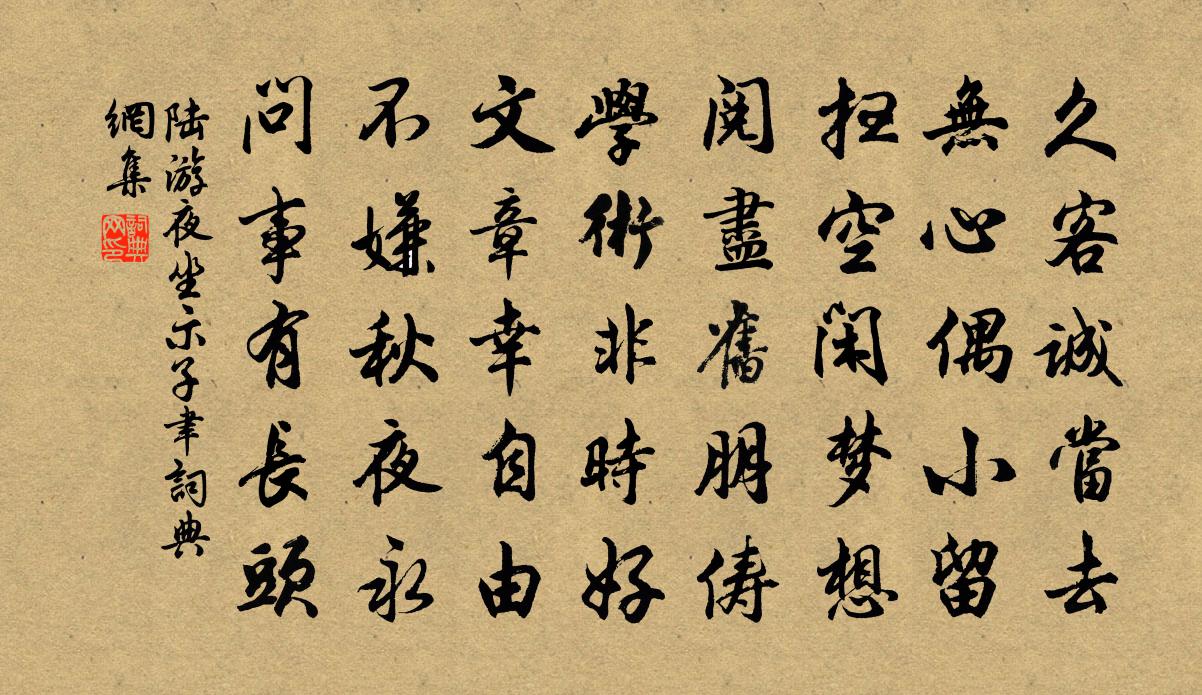 久客誠當去
無心偶小留
扫空閑梦想
閱盡舊朋儔
學術非時好
文章幸自由
不嫌秋夜永
問事有長頭
陆游夜坐示子聿詞典
網集
詞典
网印